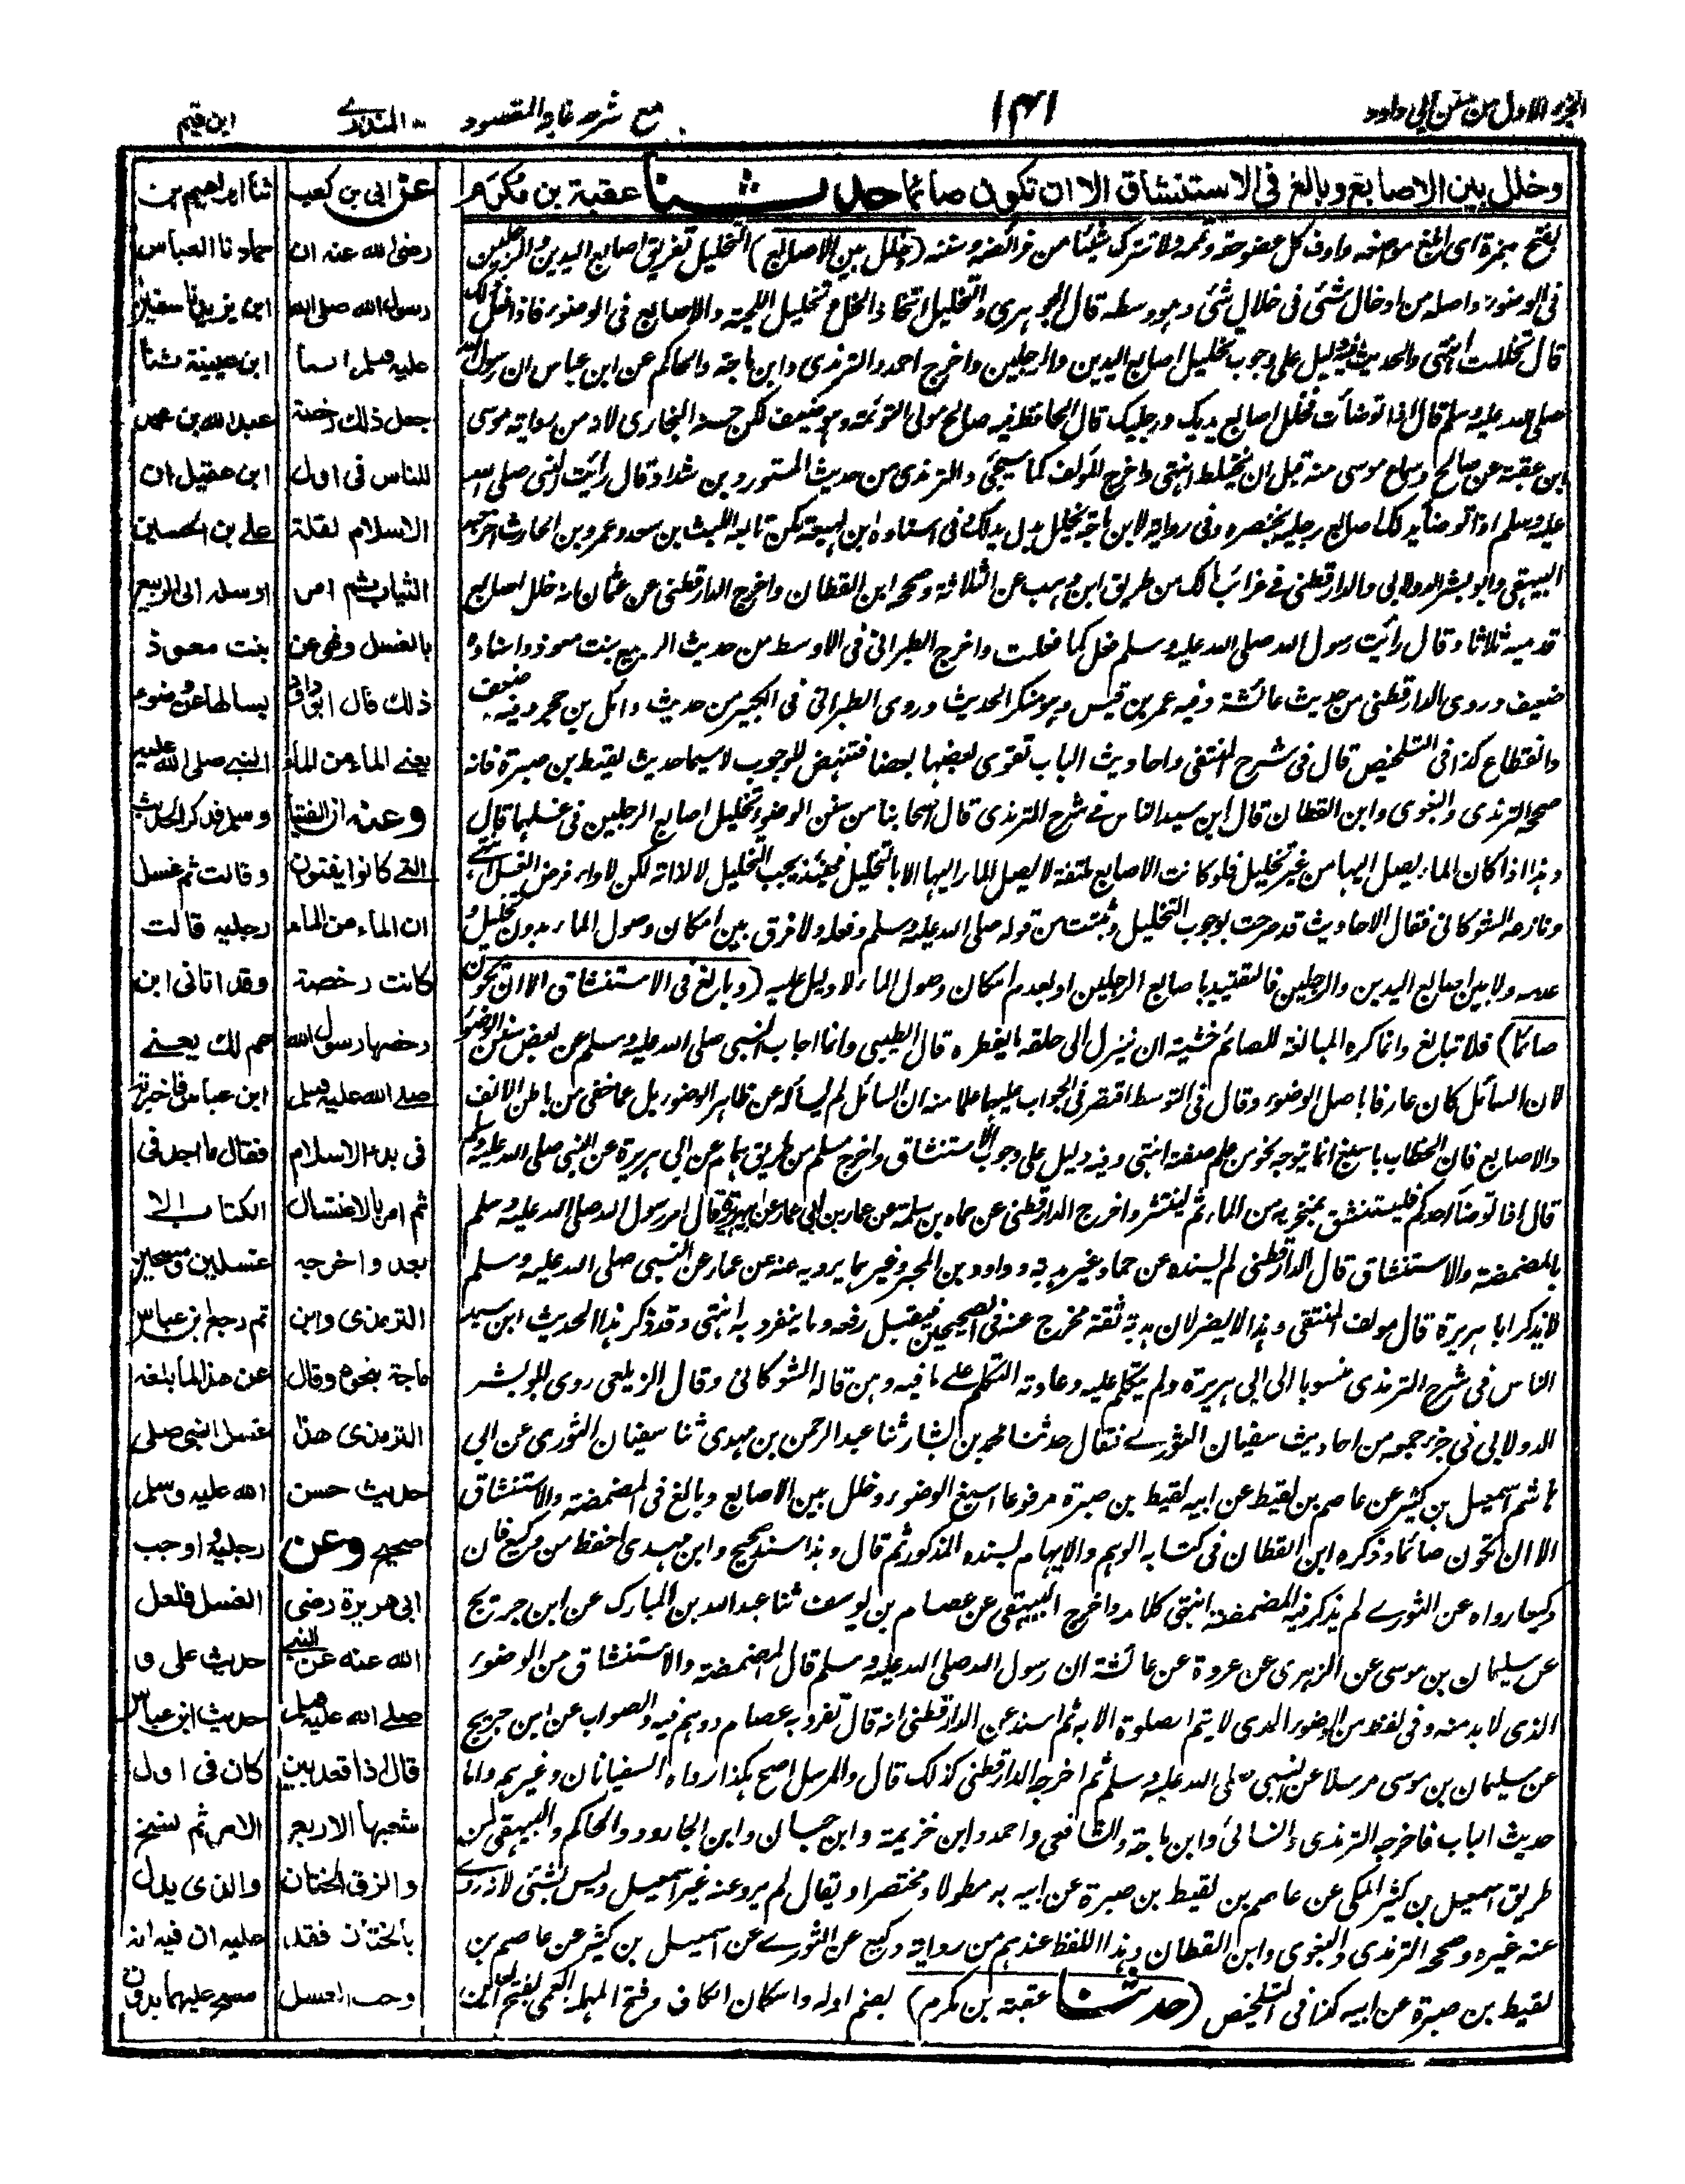 الجزء الاول من سنن ابي داود
١٤١
مع شرحه غاية المقصود
المنذري
ابن قيم
وخلل بين الاصابع وبالغ في الاستنشاق الا ان تكون صائما حدثنا عقبة بن مكرم
بفتح همزة اي ابلغ مواضعه واوف كل عضو حقه وتممه ولا تترك شيئا من فرائضه وسننه (وخلل بين الاصابع) التخليل تفريق اصابع اليدين والرجلين
في الوضوء واصله من ادخال شئ في خلال شئ وهو وسطه قال الجوهري والتخليل اتخاذ الخل وتخليل اللحية والاصابع في الوضوء فاذا فعل ذلك
قال تخللت انتهى والحديث فيه دليل على وجوب تخليل اصابع اليدين والرجلين واخرج احمد والترمذي وابن ماجة والحاكم عن ابن عباس ان رسول الله
صلى الله عليه وسلم قال اذا توضأت فخلل اصابع يديك ورجليك قال الحافظ فيه صالح مولى التوئمة وهو ضعيف لكن حسنه البخاري لانه من رواية موسى
بن عقبة عن صالح وسماع موسى منه قبل ان يختلط انتهى واخرج المؤلف كما سيجئ والترمذي من حديث المستورد بن شداد قال رأيت النبي صلى الله
عليه وسلم اذا توضأ يدلك اصابع رجليه بخنصره وفي رواية لابن ماجة يخلل بدل يدلك وفي اسناده ابن لهيعة لكن تابعه الليث بن سعد وعمرو بن الحارث اخرجه
البيهقي وابو بشر الدولابي والدارقطني في غرائب مالك من طريق ابن وهب عن الثلاثة وصححه ابن القطان واخرج الدارقطني عن عثمان انه خلل اصابع
قدميه ثلاثا وقال رأيت رسول الله صلى الله عليه وسلم فعل كما فعلت واخرج الطبراني في الاوسط من حديث الربيع بنت معوذ واسناده
ضعيف وروى الدارقطني من حديث عائشة وفيه عمر بن قيس وهو منكر الحديث وروى الطبراني في الكبير من حديث وائل بن حجر وفيه ضعف
وانقطاع كذا في التلخيص قال في شرح المنتقى واحاديث الباب تقوى بعضها بعضا فتنهض للوجوب لاسيما حديث لقيط بن صبرة فانه
صححه الترمذي والبغوي وابن القطان قال ابن سيد الناس في شرح الترمذي قال اصحابنا من سنن الوضوء تخليل اصابع الرجلين في غسلهما قال
وهذا اذا كان الماء يصل اليها من غير تخليل فلو كانت الاصابع ملتفة لا يصل الماء اليها الا بالتخليل فحينئذ يجب التخليل لا لذاته لكن لاداء فرض الغسل انتهى
ونازعه الشوكاني فقال الاحاديث قد صرحت بوجوب التخليل وثبتت من قوله صلى الله عليه وسلم وفعله ولا فرق بين امكان وصول الماء بدون تخليل و
عدمه ولا بين اصابع اليدين والرجلين فالتقييد باصابع الرجلين او بعدم امكان وصول الماء لا دليل عليه (وبالغ في الاستنشاق الا ان تكون
صائما) فلا تبالغ وانما كره المبالغة للصائم خشية ان ينزل الى حلقه ما يفطره قال الطيبي وانما اجاب النبي صلى الله عليه وسلم عن بعض سنن الوضوء
لان السائل كان عارفا باصل الوضوء وقال في التوسط اقتصر في الجواب عليها علما منه ان السائل لم يسأله عن ظاهر الوضوء بل عما خفي من باطن الانف
والاصابع فان الخطاب باسبغ انما يتوجه نحو من علم صفته انتهى وفيه دليل على وجوب الاستنشاق واخرج مسلم من طريق همام عن ابي هريرة عن النبي صلى الله عليه وسلم
قال اذا توضأ احدكم فليستنشق بمنخريه من الماء ثم لينتثر واخرج الدارقطني عن حماد بن سلمة عن عمار بن ابي عمار عن ابي هريرة قال امر رسول الله صلى الله عليه وسلم
بالمضمضة والاستنشاق قال الدارقطني لم يسنده عن حماد غير هدبة وداود بن المحبر وغيرهما يرويه عنه عن عمار عن النبي صلى الله عليه وسلم
لا يذكر ابا هريرة قال مولف المنتقى وهذا لا يضر لان هدبة ثقة مخرج عنه في الصحيحين فيقبل رفعه وما ينفرد به انتهى وقد ذكر هذا الحديث ابن سيد
الناس في شرح الترمذي منسوبا الى ابي هريرة ولم يتكلم عليه وعادته التكلم على ما فيه وهن قاله الشوكاني وقال الزيلعي روى ابو بشر
الدولابي في جزء جمعه من احاديث سفيان الثوري فقال حدثنا محمد بن بشار ثنا عبد الرحمن بن مهدي ثنا سفيان الثوري عن ابي
هاشم اسمعيل بن كثير عن عاصم بن لقيط عن ابيه لقيط بن صبرة مرفوعا اسبغ الوضوء وخلل بين الاصابع وبالغ في المضمضة والاستنشاق
الا ان تكون صائما وذكره ابن القطان في كتابه الوهم والايهام بسنده المذكور ثم قال وهذا سند صحيح وابن مهدي احفظ من وكيع فان
وكيعا رواه عن الثوري لم يذكر فيه المضمضة انتهى كلامه واخرج البيهقي عن عصام بن يوسف ثنا عبد الله بن المبارك عن ابن جريج
عن سليمان بن موسى عن الزهري عن عروة عن عائشة ان رسول الله صلى الله عليه وسلم قال المضمضة والاستنشاق من الوضوء
الذي لا بد منه وفي لفظ من الوضوء الذي لا يتم الصلوة الا به ثم اسند عن الدارقطني انه قال تفرد به عصام ووهم فيه والصواب عن ابن جريج
عن سليمان بن موسى مرسلا عن النبي صلى الله عليه وسلم ثم اخرجه الدارقطني كذلك قال والمرسل اصح هكذا رواه السفيانان وغيرهما واما
حديث الباب فاخرجه الترمذي والنسائي وابن ماجة والشافعي واحمد وابن خزيمة وابن حبان وابن الجارود والحاكم والبيهقي من
طريق اسمعيل بن كثير المكي عن عاصم بن لقيط بن صبرة عن ابيه به مطولا ومختصرا ويقال لم يرو عنه غير اسمعيل وليس بشئ لانه روى
عنه غيره وصححه الترمذي والبغوي وابن القطان وهذا اللفظ عندهم من رواية وكيع عن الثوري عن اسمعيل بن كثير عن عاصم بن
لقيط بن صبرة عن ابيه كذا في التلخيص (حدثنا عقبة بن مكرم) بضم اوله واسكان الكاف وفتح المهملة العمى بفتح العين
عن ابي بن كعب
رضي الله عنه ان
رسول الله صلى الله
عليه وسلم انما
جعل ذلك رخصة
للناس في اول
الاسلام لقلة
الثياب ثم امر
بالغسل ونهى عن
ذلك قال ابو داود
يعني الماء من الماء
وعنه ان الفتيا
التي كانوا يفتون
ان الماء من الماء
كانت رخصة
رخصها رسول الله
صلى الله عليه وسلم
في بدء الاسلام
ثم امر بالاغتسال
بعد واخرجه
الترمذي وابن
ماجة بنحوه وقال
الترمذي هذا
حديث حسن
صحيح وعن
ابي هريرة رضي
الله عنه عن النبي
صلى الله عليه وسلم
قال اذا قعد بين
شعبها الاربع
والزق الختان
بالختان فقد
وجب الغسل
ثنا ابراهيم بن
حماد نا العباس
ابن يزيد نا سفيان
ابن عيينة ثنا
عبد الله بن محمد
ابن عقيل ان
علي بن الحسين
ارسله الى الربيع
بنت معوذ
يسألها عن وضوء
النبي صلى الله عليه
وسلم فذكر الحديث
وقالت ثم غسل
رجليه قالت
وقد اتاني ابن
عم لك يعني
ابن عباس فاخبرته
فقال ما اجد في
الكتاب الا
غسلين ومسحين
ثم رجع ابن عباس
عن هذا لما بلغه
غسل النبي صلى
الله عليه وسلم
رجليه واوجب
الغسل فلعل
حديث علي و
حديث ابن عباس
كان في اول
الامر ثم نسخ
والذي يدل
عليه ان فيه انه
مسح عليهما بدون